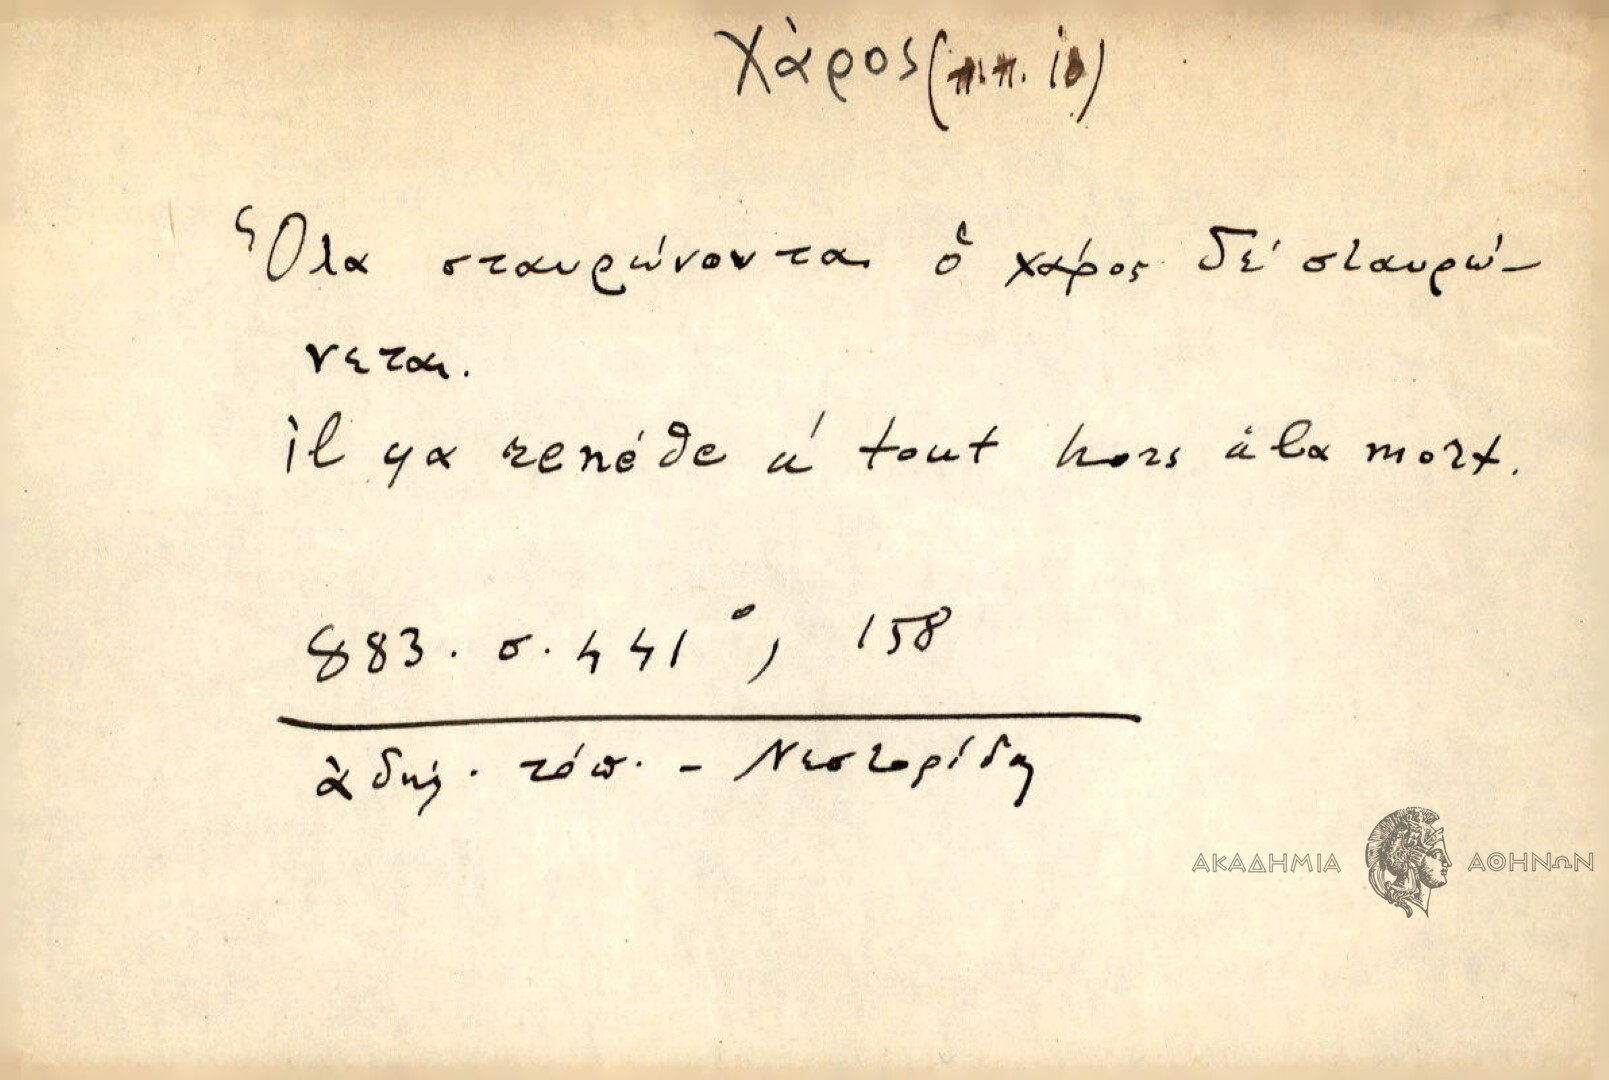 Χάρος (π.π. 10)
Ὅλα σταυρώνουνται ὁ χάρος δέ σταυρώ-
νεται.
il ya renéde á tout hors à la mort.
883. σ. 441, 158
ἀδήλ. τόπ. - Νεστορίδη
ΑΚΑΔΗΜΙΑ ΑΘΗΝΩΝ